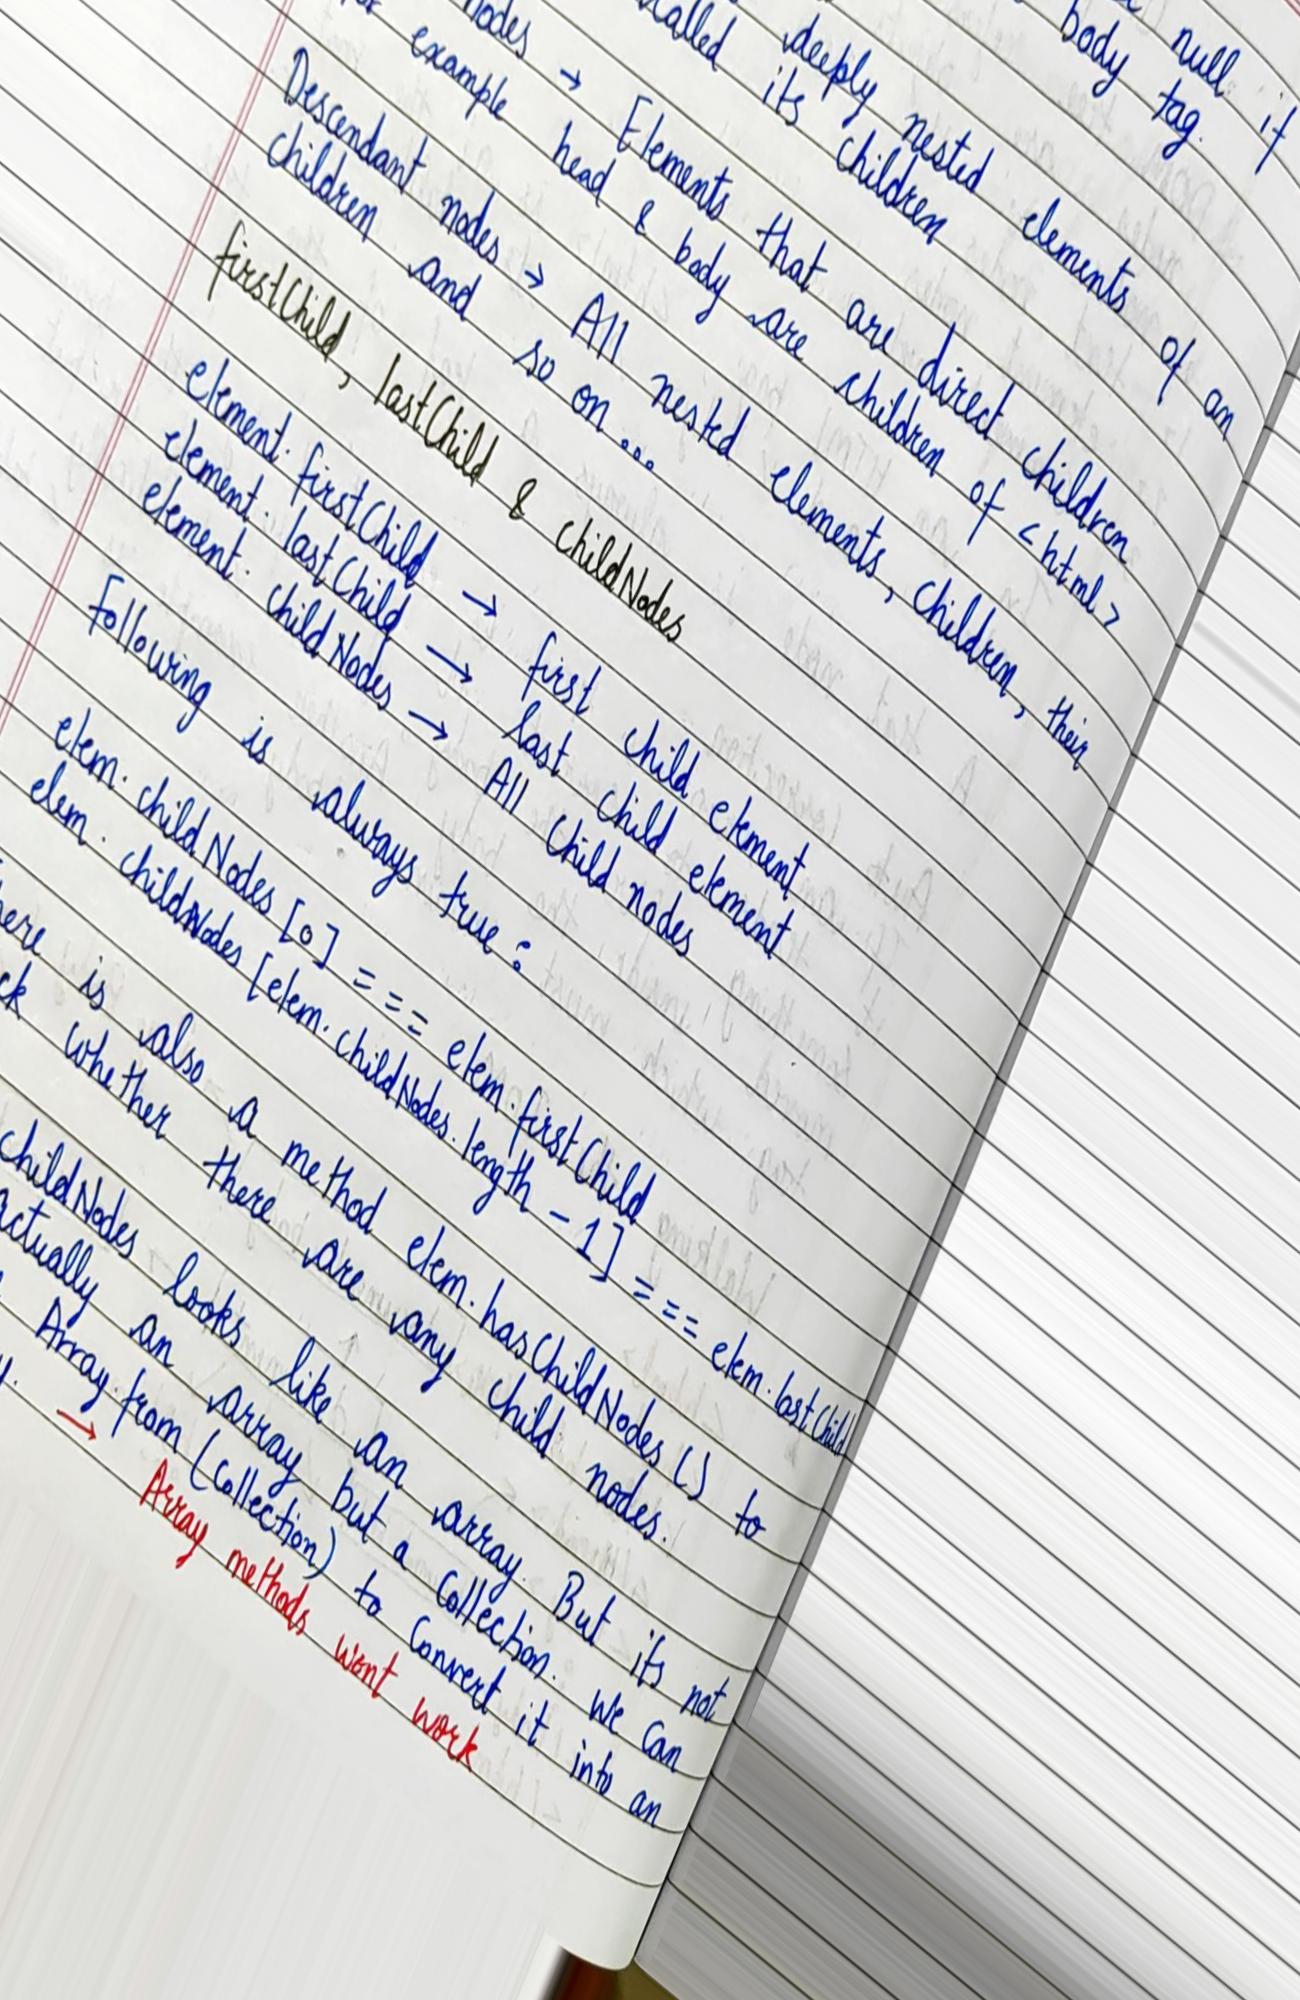 null if
body tag.
deeply nested elements of an
called its children
nodes → Elements that are direct children
example head & body are children of <html>
Descendant nodes → All nested elements, children, their
children and so on ...
firstChild, lastChild & childNodes
element. firstChild → first child element
element. lastChild → last child element
element. childNodes → All child nodes
Following is always true :
elem. childNodes [0] === elem. firstChild
elem. childNodes [elem. childNodes. length - 1] === elem. lastChild
is also a method elem. hasChildNodes () to
whether there are any child nodes.
childNodes looks like an array. But its not
actually an array but a collection. We can
Array. from (collection) to convert it into an
→ Array methods wont work